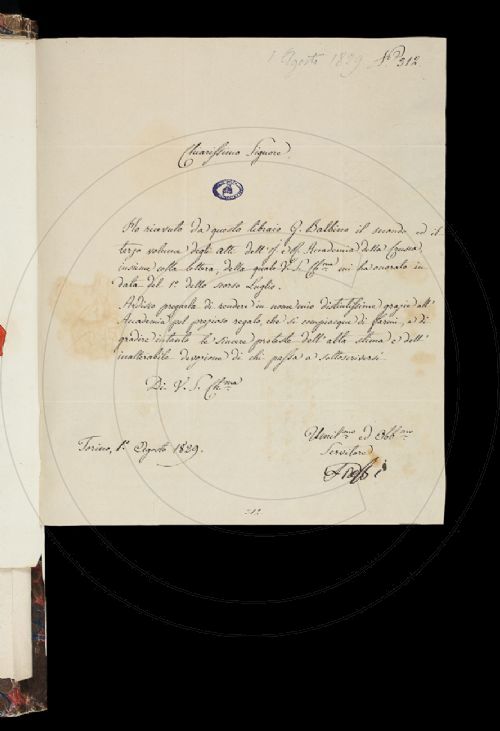 1 Agosto 1839 N.º 312
Chiarissimo Signore.
Ho ricevuto da questo libraio G. Balbino il secondo ed il
terzo volume degli atti dell' I. e R. Accademia della Crusca,
insieme colla lettera, della quale V. S. Ch.ma mi ha onorato in
data del 1º dello scorso Luglio.
Ardisco pregarla di rendere in nome mio distintissime grazie all'
Accademia pel prezioso regalo, che si compiacque di farmi, e di
gradire intanto le sincere proteste dell' alta stima e dell'
inalterabile devozione di chi passa a sottoscriversi
Di V. S. Ch.ma
Torino, 1º Agosto 1839.
Umil.mo ed Obb.mo
Servitore
312